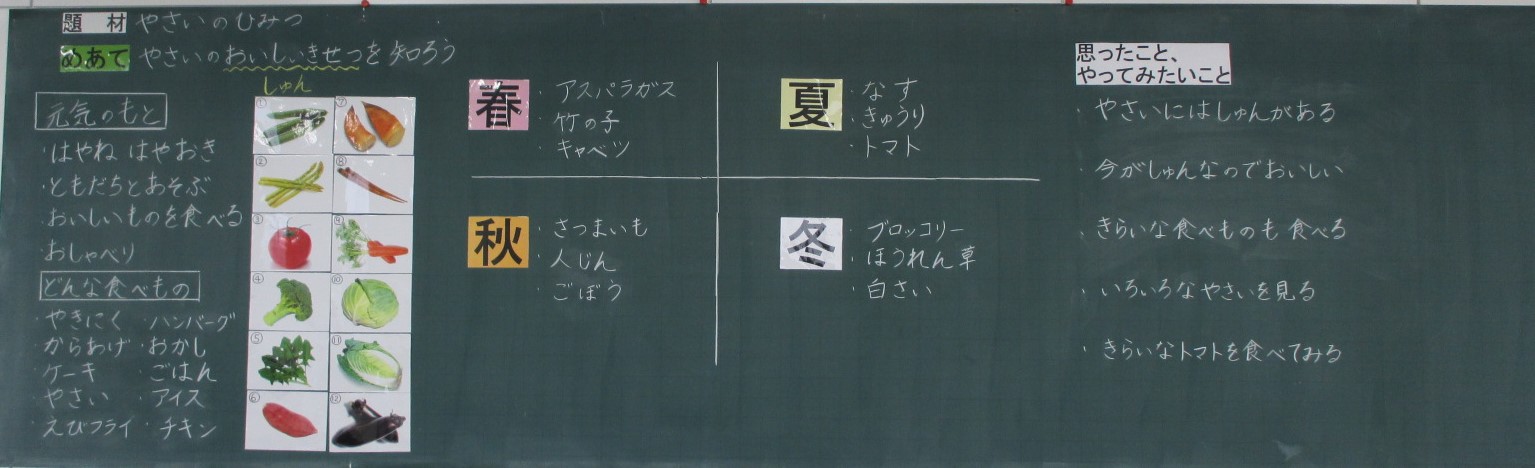 題材 やさいのひみつ
めあて やさいのおいしいきせつを知ろう
しゅん
元気のもと
・はやね はやおき
・ともだちとあそぶ
・おいしいものを食べる
・おしゃべり
どんな食べもの
・やきにく ・ハンバーグ
・からあげ ・おかし
・ケーキ ・ごはん
・やさい ・アイス
・えびフライ ・チキン
① ⑦
② ⑧
③ ⑨
④ ⑩
⑤ ⑪
⑥ ⑫
春
・アスパラガス
・竹の子
・キャベツ
夏
・なす
・きゅうり
・トマト
秋
・さつまいも
・人じん
・ごぼう
冬
・ブロッコリー
・ほうれん草
・白さい
思ったこと、
やってみたいこと
・やさいにはしゅんがある
・今がしゅんなのでおいしい
・きらいな食べものも食べる
・いろいろなやさいを見る
・きらいなトマトを食べてみる